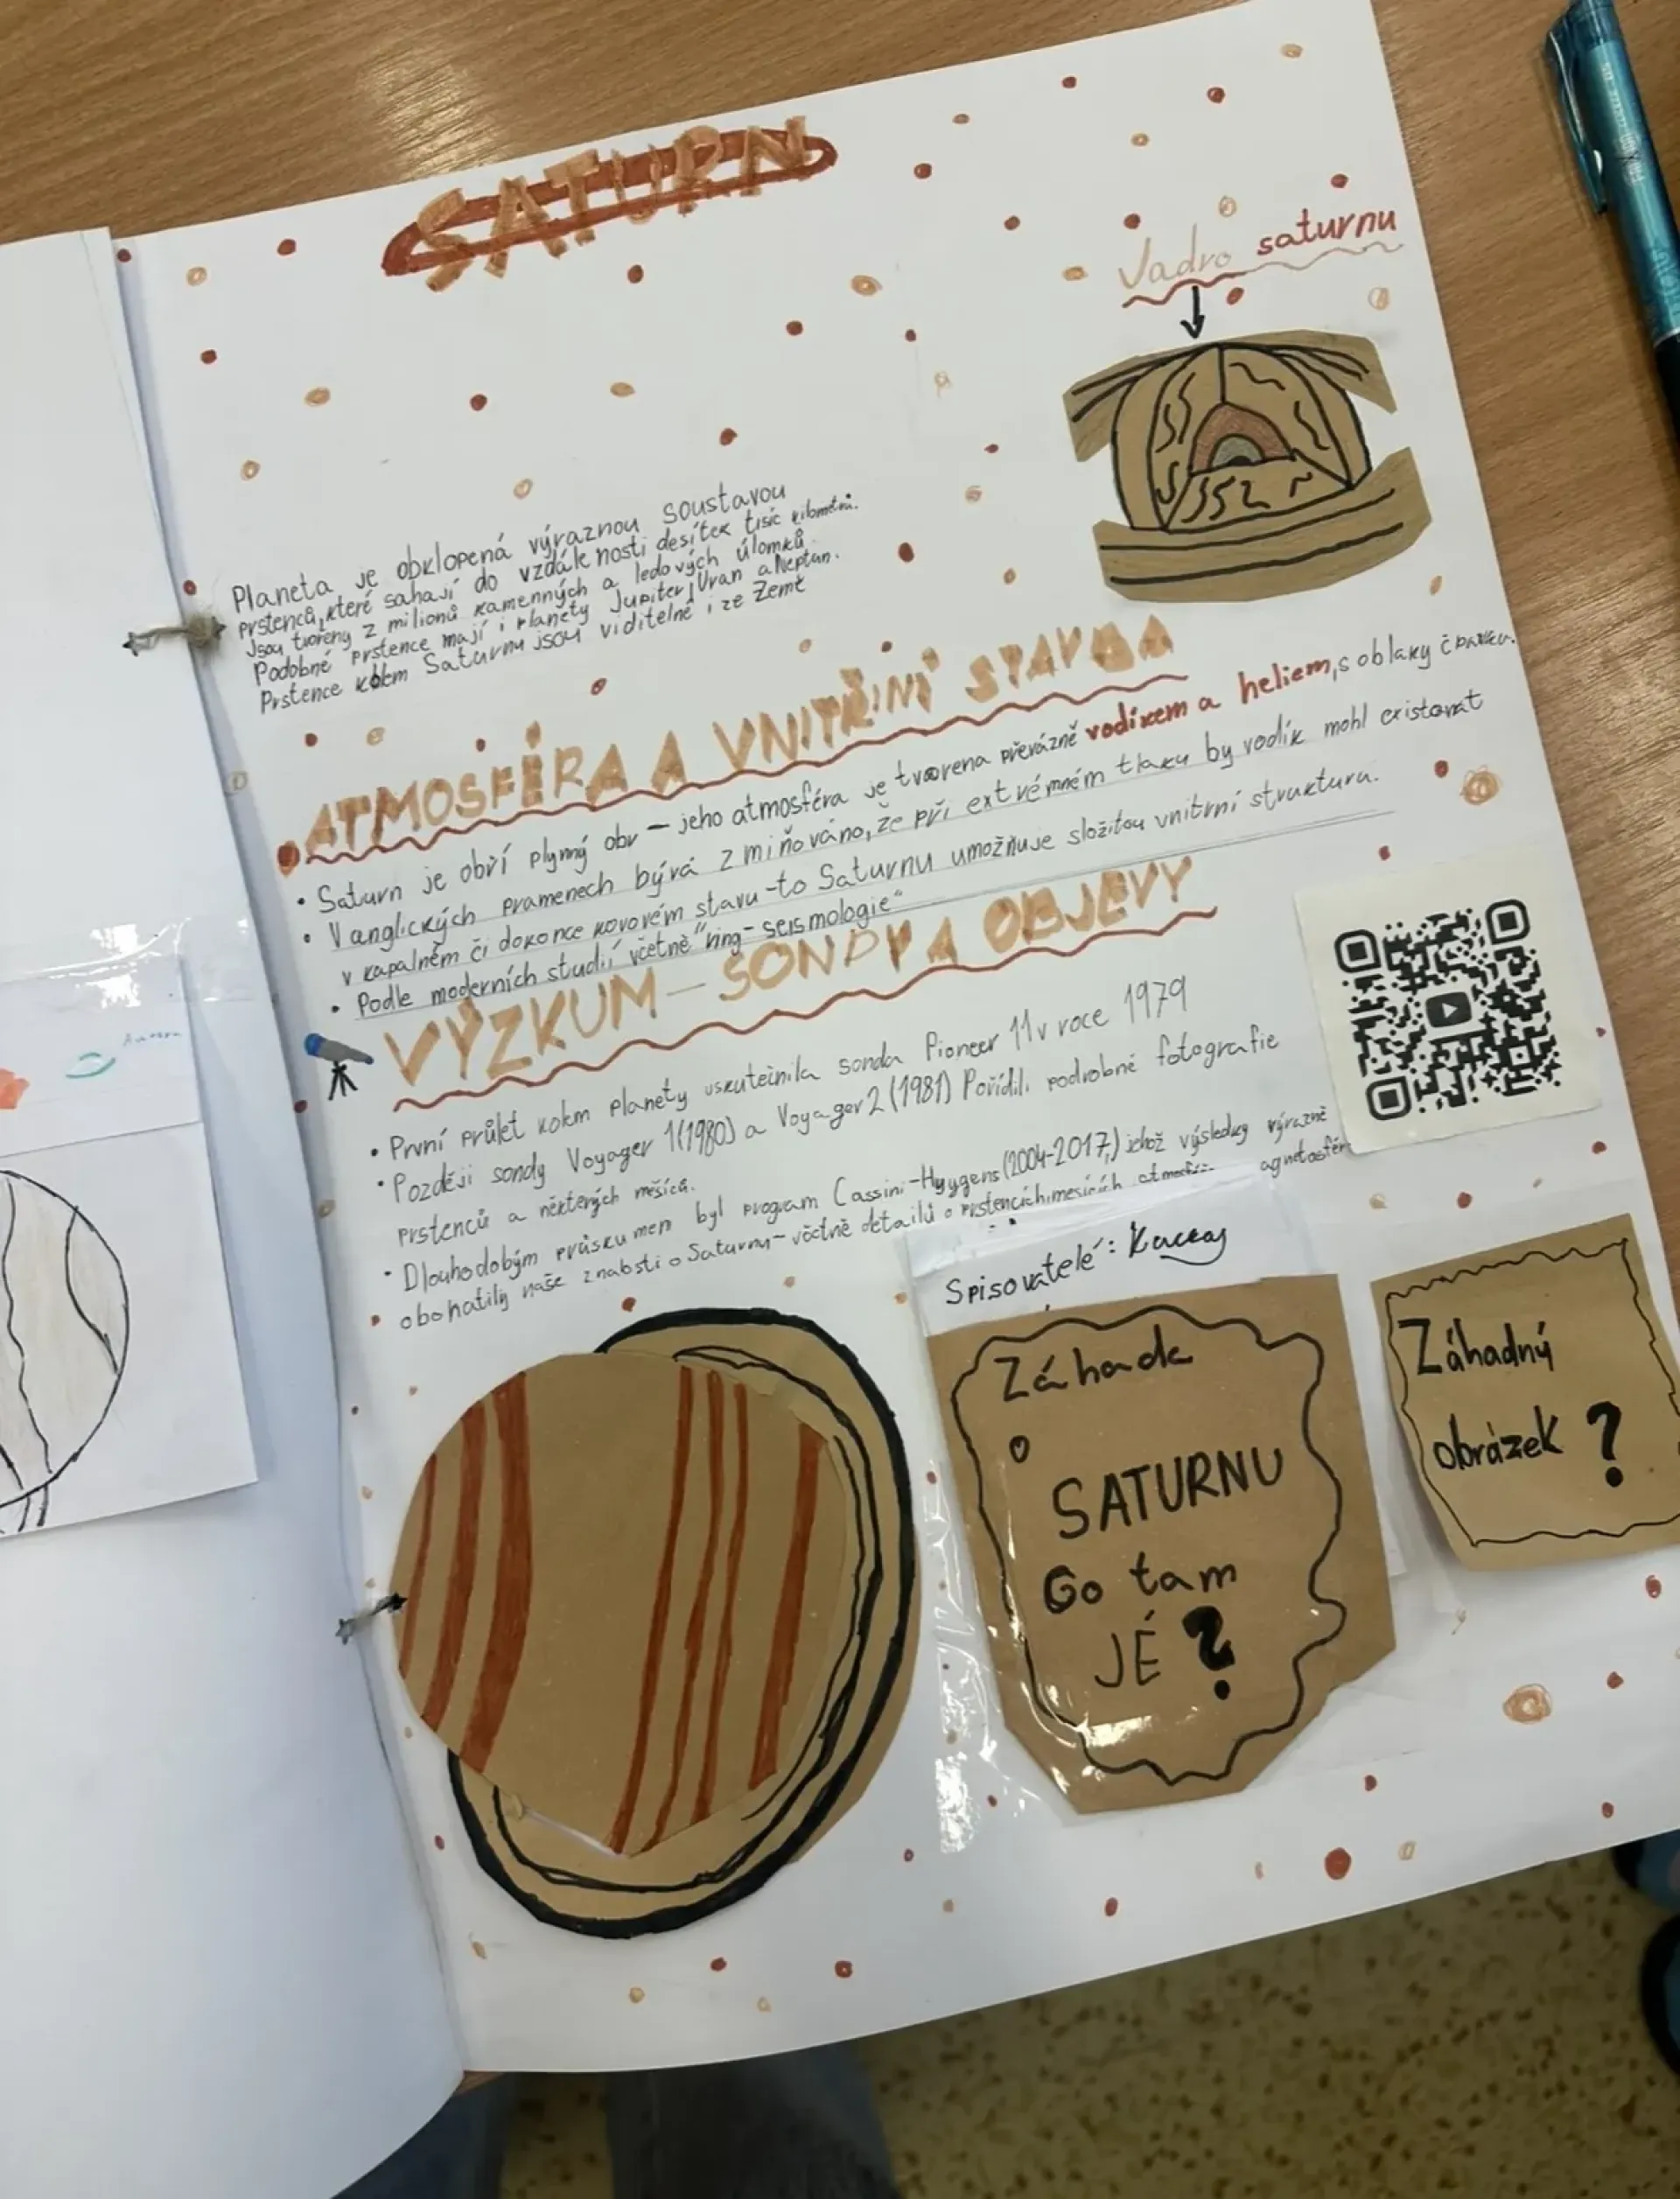 SATURN
Jadro saturnu
Planeta je obklopená výraznou soustavou
prstenců, které sahají do vzdálenosti desítek tisíc kilometrů.
Jsou tvořeny z milionů kamenných a ledových úlomků.
Podobné prstence mají i planety Jupiter, Uran a Neptun.
Prstence kolem Saturnu jsou viditelné i ze Země
ATMOSFÉRA A VNITŘNÍ STAVBA
• Saturn je obří plynný obr – jeho atmosféra je tvorena převázně vodíkem a heliem, s oblaky čpavku.
• V anglických pramenech bývá zmiňováno, že při extrémném tlaku by vodík mohl existovat
v kapalném či dokonce kovovém stavu - to Saturnu umožňuje složitou vnitrní strukturu.
• Podle moderních studií včetně "ring - seismologie"
VÝZKUM – SONDY A OBJEVY
• První průlet kolem planety uskutečnila sonda Pioneer 11 v roce 1979
• Později sondy Voyager 1 (1980) a Voyager 2 (1981) Pořídili podrobné fotografie
prstenců a některých měsíců.
• Dlouhodobým průskumem byl program Cassini-Huygens (2004-2017,) jehož výsledky výrazně
obohatily naše znalosti o Saturnu – včetně detailů o prstencích, mesících
Spisovatelé:
Záhada
o
SATURNU
Co tam
JÉ ?
Záhadný
obrázek ?